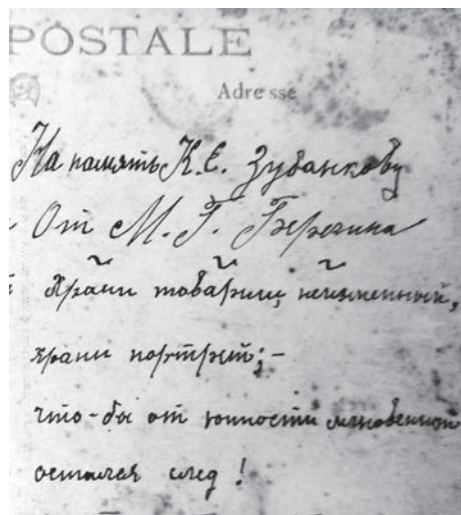 POSTALE
Adresse
На память К. Е. Зубанкову
От М. Г. Березина
Храни товарищ неизменный,
храни портрет; –
что-бы от юности мгновенной
остался след !